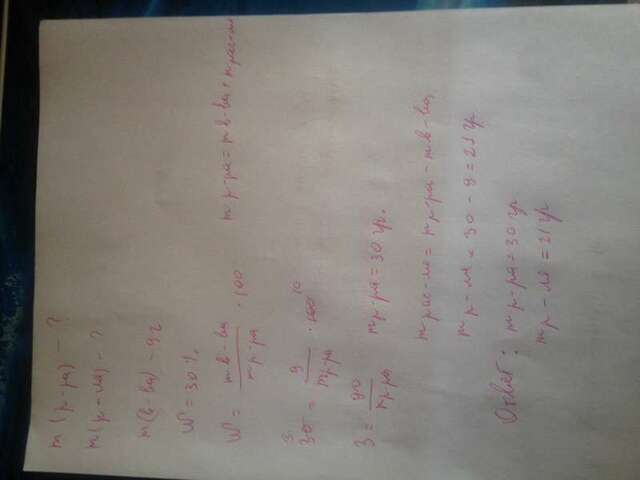 m (р-ра) - ?
m (р-ля) - ?
m (в-ва) - 9г
W = 30%
W = m в-ва / m р-ра · 100 m р-ра = m в-ва + m рас-ля
3 30 = 9 / m р-ра · 100 10
3 = 90 / m р-ра m р-ра = 30 гр.
m рас-ля = m р-ра - m в-ва
m р-ля = 30 - 9 = 21 гр
Ответ: m р-ра = 30 гр
m р-ля = 21 гр